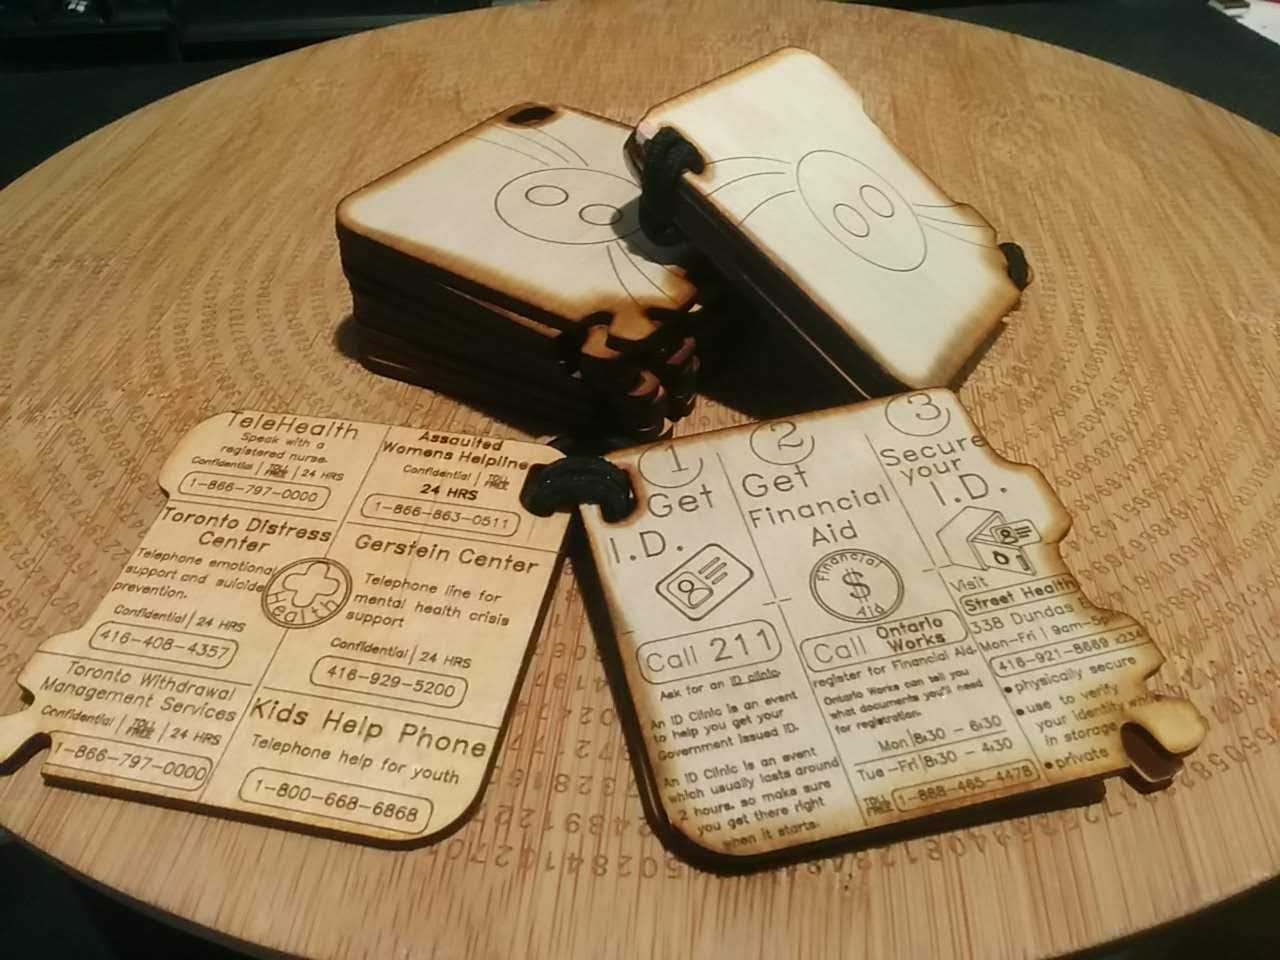 TeleHealth
Speak with a
registered nurse.
Confidential | TOLL FREE | 24 HRS
1-866-797-0000
Assaulted
Womens Helpline
Confidential | TOLL FREE
24 HRS
1-866-863-0511
Toronto Distress
Center
Telephone emotional
support and suicide
prevention.
Confidential | 24 HRS
416-408-4357
Health
Gerstein Center
Telephone line for
mental health crisis
support
Confidential | 24 HRS
416-929-5200
Toronto Withdrawal
Management Services
Confidential | TOLL FREE | 24 HRS
1-866-797-0000
Kids Help Phone
Telephone help for youth
1-800-668-6868
1
Get
I.D.
Call 211
Ask for an ID clinic
An ID Clinic is an event
to help you get your
Government issued ID.
An ID Clinic is an event
which usually lasts around
2 hours, so make sure
you get there right
when it starts.
2
Get
Financial
Aid
Financial
$
Aid
Call Ontario
Works
register for Financial Aid.
Ontario Works can tell you
what documents you'll need
for registration.
Mon | 8:30 - 6:30
Tue -Fri | 8:30 - 4:30
TOLL FREE 1-888-465-4478
3
Secure
your
I.D.
Visit
Street Health
338 Dundas
Mon-Fri | 9am-5pm
416-921-8669 x234
physically secure
use to verify
your identity
in storage
private